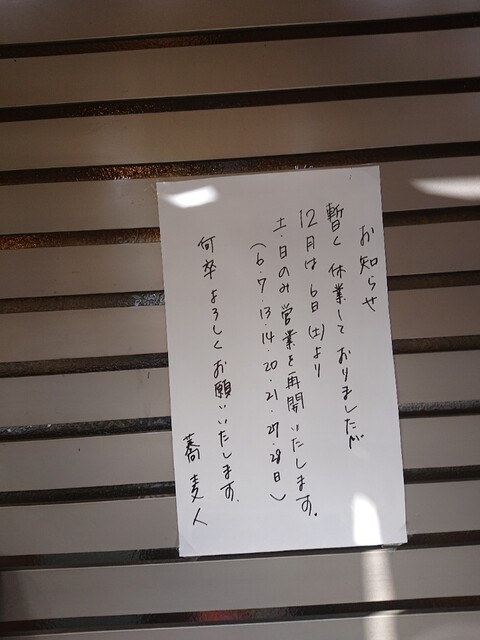 お知らせ
暫く休業しておりましたが
12月は6日(土)より
土・日のみ営業を再開いたします。
(6・7・13・14・20・21・27・28日)
何卒よろしくお願いいたします。
蕎麦人